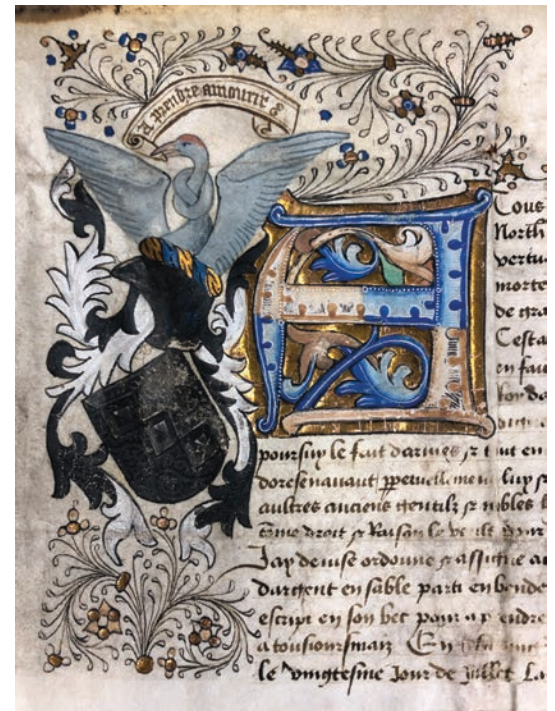 A prendre amourir
A
Tous
North
vertu
morte
de gra
Cesta
en fai
poursuy le fait darmes & tout en
doresenavant ppetuellement luy &
aultres anciens gentilz & nobles
droit & Raison le veult pour
Jay devise ordonne & assigne au
dargent en sable parti en bende
escript en son bec pour a prendre
a tousioursmaiz En
le vingtesme Jour de Juillet La